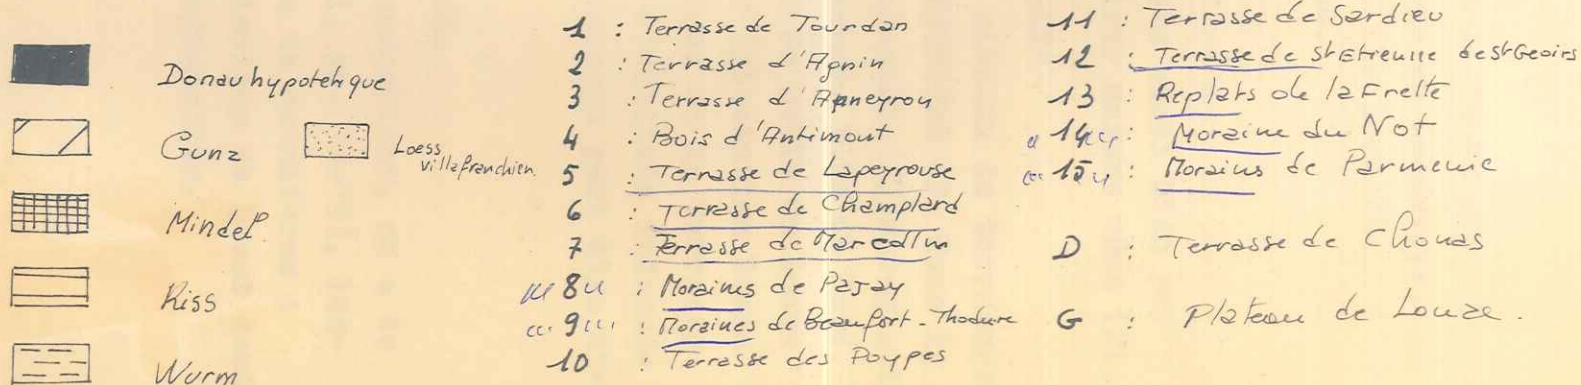 Donau hypotehique
Gunz
Loess
villafranchien.
Mindel.
Riss
Wurm
1 : Terrasse de Tourdan
2 : Terrasse d'Agnin
3 : Terrasse d'Anneyron
4 : Bois d'Antimout
5 : Terrasse de Lapeyrouse
6 : Terrasse de Champlard
7 : Terrasse de Marcollin
8 : Moraines de Pajay
9 : Moraines de Beaufort - Thodure
10 : Terrasse des Poypes
11 : Terrasse de Sardieu
12 : Terrasse de St Etienne de St Geoirs
13 : Replats de la Frette
14 : Moraine du Not
15 : Morains de Parmenie
D : Terrasse de Chonas
G : Plateau de Louze.